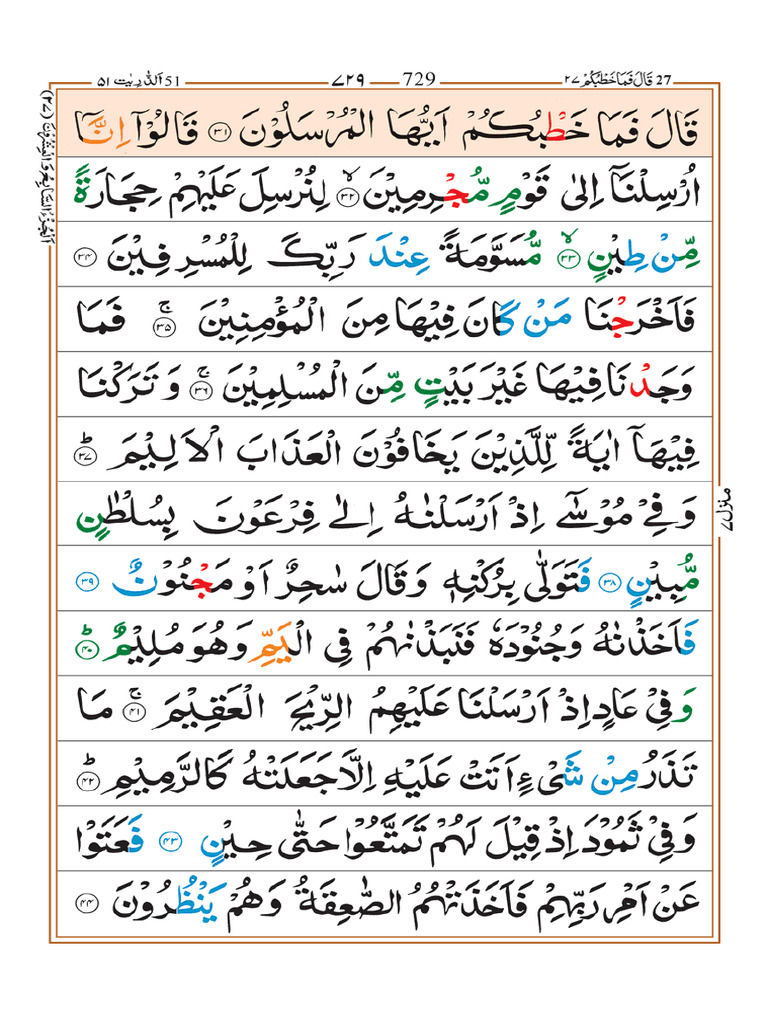 27 قَالَ فَمَا خَطْبُكُمْ ٢٧ — 729 — ٧٢٩ — 51 اَلذّٰرِيٰت ٥١
اَلْجُزْءُ السَّابِعُ وَالْعِشْرُوْنَ (٢٧)
قَالَ فَمَا خَطْبُكُمْ اَيُّهَا الْمُرْسَلُوْنَ ﴿٣١﴾ قَالُوْۤا اِنَّاۤ
اُرْسِلْنَاۤ اِلٰى قَوْمٍ مُّجْرِمِيْنَ ﴿٣٢﴾ۙ لِنُرْسِلَ عَلَيْهِمْ حِجَارَةً
مِّنْ طِيْنٍ ﴿٣٣﴾ۙ مُّسَوَّمَةً عِنْدَ رَبِّكَ لِلْمُسْرِفِيْنَ ﴿٣٤﴾
فَاَخْرَجْنَا مَنْ كَانَ فِيْهَا مِنَ الْمُؤْمِنِيْنَ ﴿٣٥﴾ۚ فَمَا
وَجَدْنَا فِيْهَا غَيْرَ بَيْتٍ مِّنَ الْمُسْلِمِيْنَ ﴿٣٦﴾ۚ وَ تَرَكْنَا
فِيْهَاۤ اٰيَةً لِّلَّذِيْنَ يَخَافُوْنَ الْعَذَابَ الْاَلِيْمَ ﴿٣٧﴾ؕ
وَفِيْ مُوْسٰۤى اِذْ اَرْسَلْنٰهُ اِلٰى فِرْعَوْنَ بِسُلْطٰنٍ
مُّبِيْنٍ ﴿٣٨﴾ فَتَوَلّٰى بِرُكْنِهٖ وَقَالَ سٰحِرٌ اَوْ مَجْنُوْنٌ ﴿٣٩﴾
فَاَخَذْنٰهُ وَجُنُوْدَهٗ فَنَبَذْنٰهُمْ فِى الْيَمِّ وَهُوَ مُلِيْمٌ ﴿٤٠﴾ؕ
وَفِيْ عَادٍ اِذْ اَرْسَلْنَا عَلَيْهِمُ الرِّيْحَ الْعَقِيْمَ ﴿٤١﴾ۚ مَا
تَذَرُ مِنْ شَىْءٍ اَتَتْ عَلَيْهِ اِلَّا جَعَلَتْهُ كَالرَّمِيْمِ ﴿٤٢﴾ؕ
وَفِيْ ثَمُوْدَ اِذْ قِيْلَ لَهُمْ تَمَتَّعُوْا حَتّٰى حِيْنٍ ﴿٤٣﴾ فَعَتَوْا
عَنْ اَمْرِ رَبِّهِمْ فَاَخَذَتْهُمُ الصّٰعِقَةُ وَهُمْ يَنْظُرُوْنَ ﴿٤٤﴾
منزل ٧